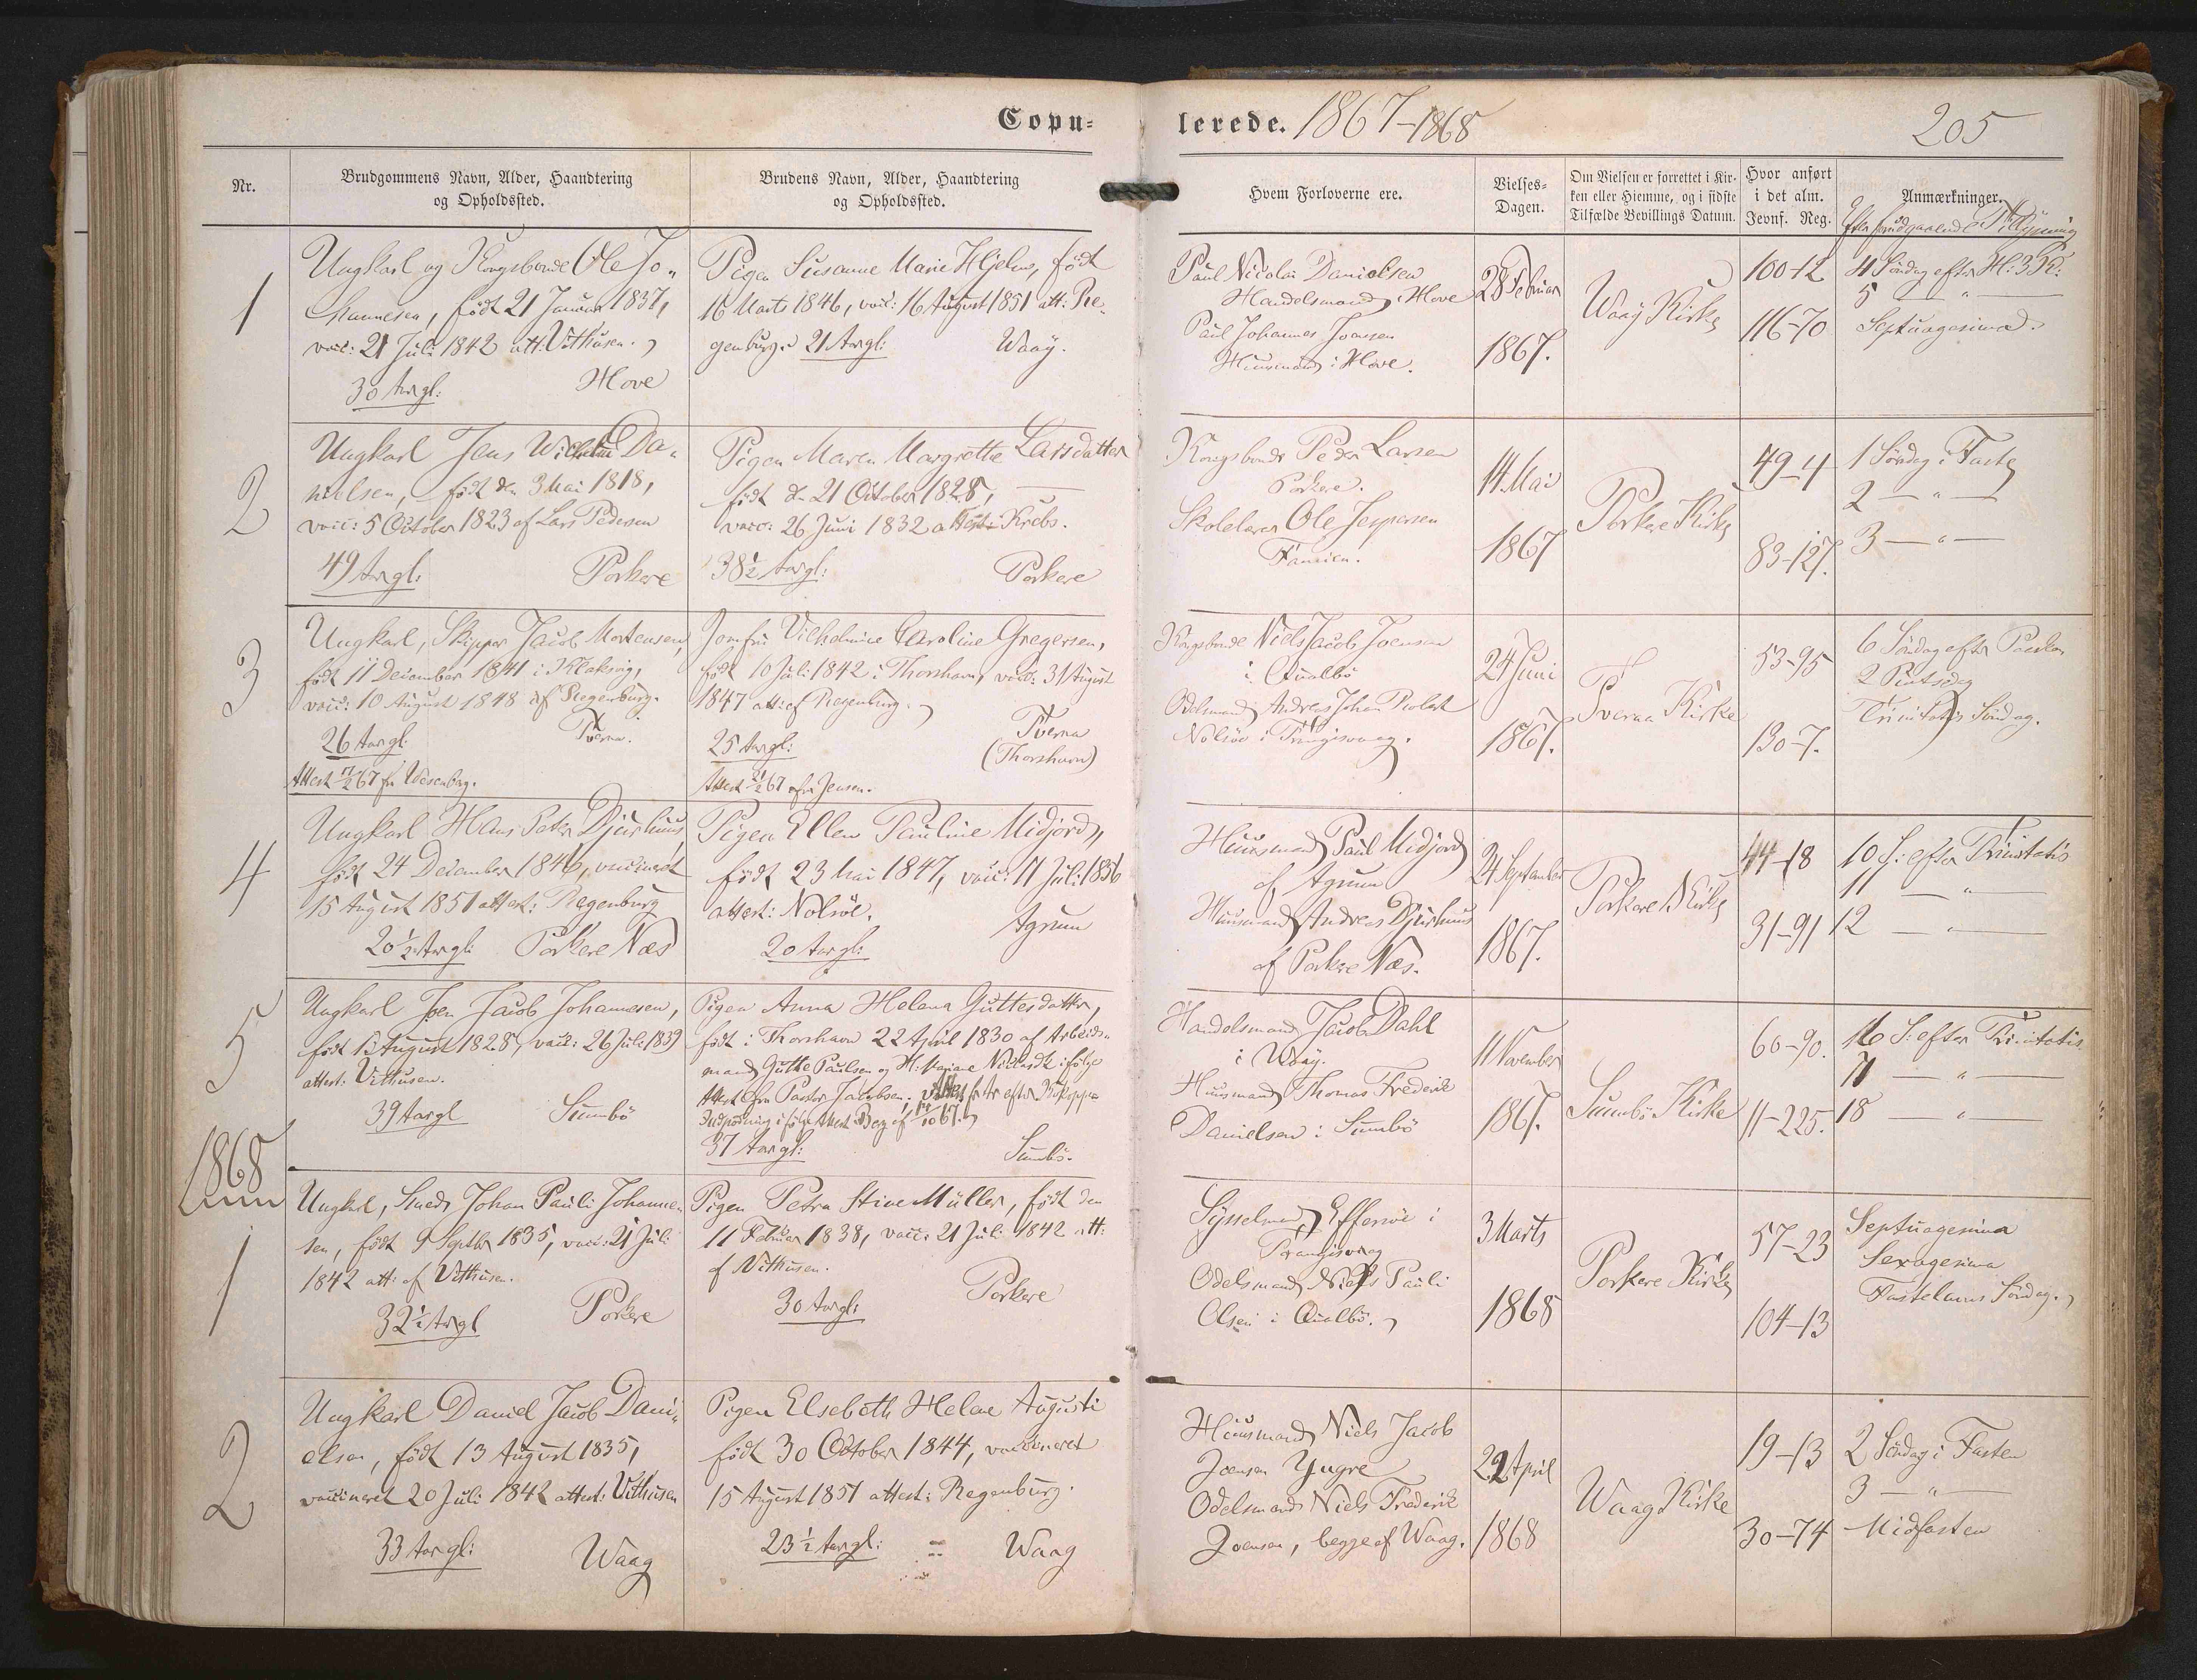 Copu=
lerede. 1867-1868
205
Nr.
Brudgommens Navn, Alder, Haandtering
og Opholdssted.
Brudens Navn, Alder, Haandtering
og Opholdssted.
Hvem Forloverne ere.
Vielses=
Dagen.
Om Vielsen er forrettet i Kir-
ken eller Hjemme, og i sidste
Tilfælde Bevillings Datum.
Hvor anført
i det alm.
Jevnf. Reg.
Anmærkninger.
Efter foregaaende Tillysning
1
Ungkarl og Kongsbonde Ole Jo-
hannesen, født 21 Januar 1837,
vacc: 21 Juli 1842 att: Vithusen.
30 Aargl:
Hove
Pigen Susanne Marie Hjelm, født
16 Marts 1846, vacc: 16 August 1851 att: Re-
genburg. 21 Aargl: Waag.
Paul Nicolai Danielsen
Handelsmand, Hove
Paul Johannes Joensen
Huusmand i Hove.
28 Februar
1867.
Waag Kirke
100-12
116-70
4 Søndag efter H: 3 K:
5 — " —
Septuagesima
2
Ungkarl Jens Wilhelm Da-
nielsen, født den 3 Mai 1818,
vacc: 5 October 1823 af Lars Pedersen
49 Aargl:
Porkere
Pigen Maren Margrethe Larsdatter
født d. 21 October 1828,
vacc: 26 Juni 1832 attest: Krebs.
38½ Aargl:
Porkere
Kongsbonde Peder Larsen
Porkere.
Skolelærer Ole Jespersen
Famien.
14 Mai
1867
Porkere Kirke
49-4
83-127.
1 Søndag i Faste
2 — " —
3 — " —
3
Ungkarl, Skipper Jacob Mortensen,
født 11 December 1841 i Klaksvig,
vacc: 10 August 1848 af Regenburg.
26 Aargl.
Tveraa.
Attest 17/2 67 fra Wesenberg.
Jomfru Vilhelmine Caroline Gregersen,
født 10 Juli 1842 i Thorshavn, vacc: 31 August
1847 att: af Regenburg.
25 Aargl:
Tveraa
(Thorshavn)
Attest 21/2 67 fra Jensen.
Kongsbonde Niels Jacob Joensen
i Qvalbø
Odelsmand Andreas Johan
Nolsøe i Trangisvaag.
24 Juni
1867.
Tveraa Kirke
53-95
130-7.
6 Søndag efter Paaske
2 Pintsedag
Trinitatis Søndag.
4
Ungkarl Hans Peter Djurhuus
født 24 December 1846, vaccineret
15 August 1851 attest: Regenburg
20½ Aargl: Porkere Næs
Pigen Ellen Pauline Midjord,
født 23 Mai 1847, vacc: 11 Juli 1856
attest: Nolsøe.
20 Aargl:
Agrum
Huusmand Paul Midjord
af Agrum
Huusmand Andreas Djurhuus
af Porkere Næs.
24 September
1867.
Porkere Kirke
44-18
31-91
10 S: efter Trinitatis
11 — " —
12 — " —
5
Ungkarl Joen Jacob Johannesen,
født 12 August 1828, vacc: 26 Juli 1839
attest: Vithusen.
39 Aargl
Sumbø
Pigen Anna Helena Guttesdatter,
født i Thorshavn 22 April 1830 af Arbeids-
mand Gutte Paulsen og H: Mariane Nielsdt: ifølge
Attest fra Pastor Jacobsen.
37 Aargl:
Sumbø.
Handelsmand Jacob Dahl
i Waag.
Huusmand Thomas Frederik
Danielsen i Sumbø
11 November
1867.
Sumbø Kirke
60-90.
11-225.
16 S: efter Trinitatis.
17 — " —
18 — " —
1868
1
Ungkarl, Smed Johan Pauli Johanne-
sen, født 9 Septbr 1835, vacc: 21 Juli
1842 att: af Vithusen.
32½ Aargl
Porkere
Pigen Petra Stine Müller, født den
11 Februar 1838, vacc: 21 Juli 1842 att:
af Vithusen.
30 Aargl:
Porkere
Sysselmand Effersøe i
Trangisvaag
Odelsmand Niels Pauli
Olsen i Qvalbø.
3 Marts
1868
Porkere Kirke
57-23
104-13
Septuagesima
Sexagesima
Fastelavns Søndag.
2
Ungkarl Daniel Jacob Dani-
elsen, født 13 August 1835,
vaccineret 20 Juli 1842 attest: Vithusen
33 Aargl:
Waag
Pigen Elsebeth Helene Augusti
født 30 October 1844, vaccineret
15 August 1851 attest: Regenburg.
23½ Aargl: = Waag
Huusmand Niels Jacob
Joensen Yngre
Odelsmand Niels Frederik
Joensen, begge af Waag.
22 April
1868
Waag Kirke
19-13
30-74
2 Søndag i Fasten
3 — " —
Midfasten